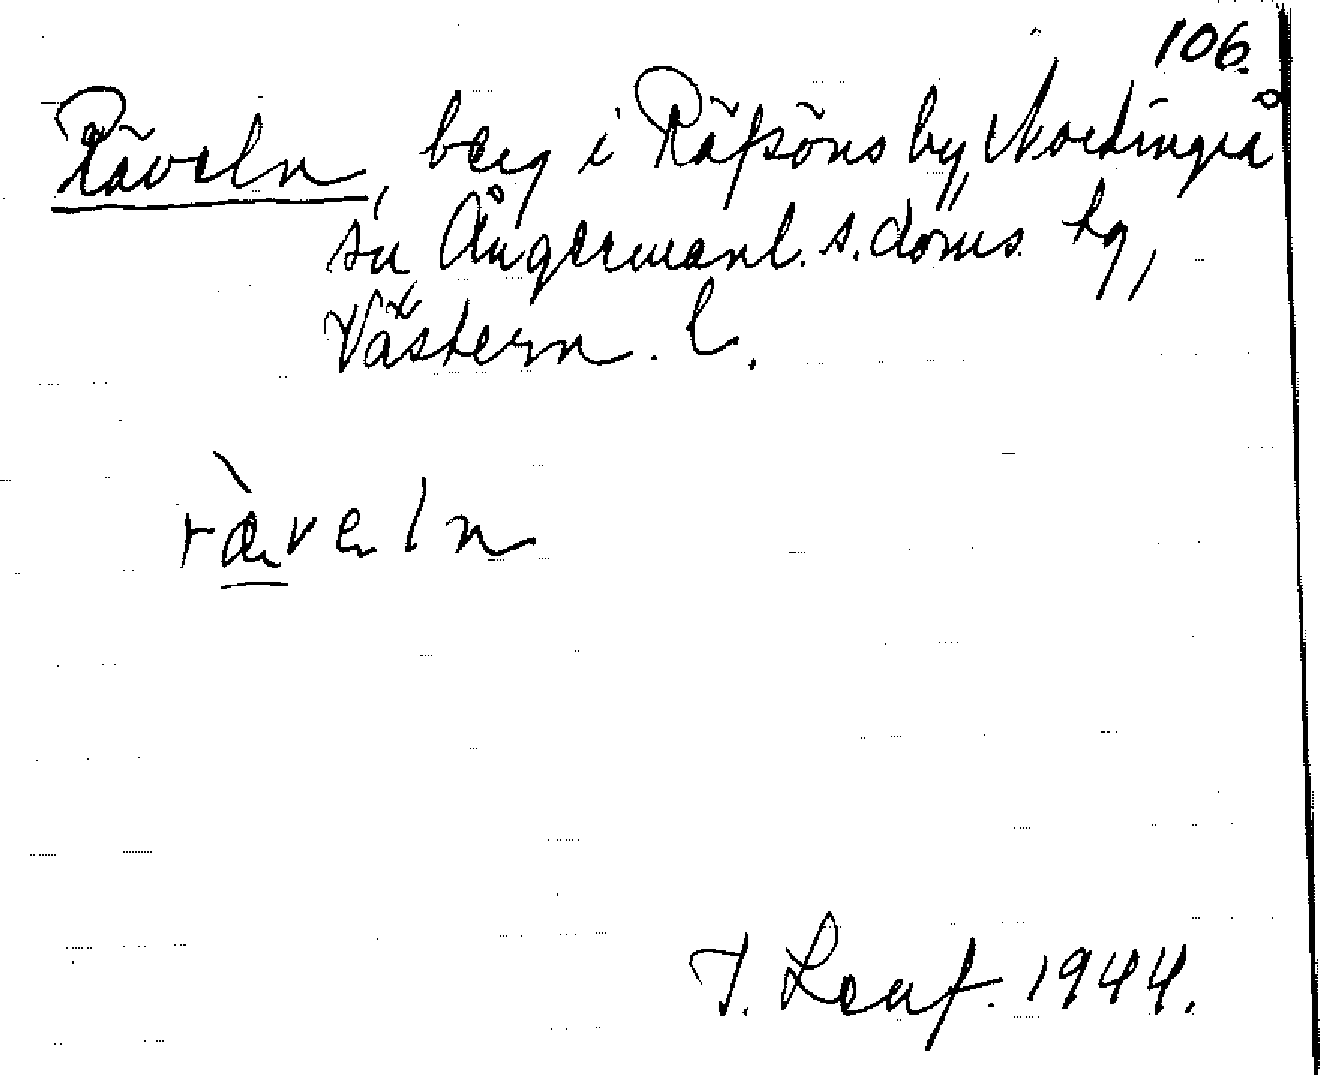 106.
Räveln, berg i Räfsöns by, Nordingrå
sn Ångermanl. s. doms. tg,
Västern. l.
ræveln
1944.